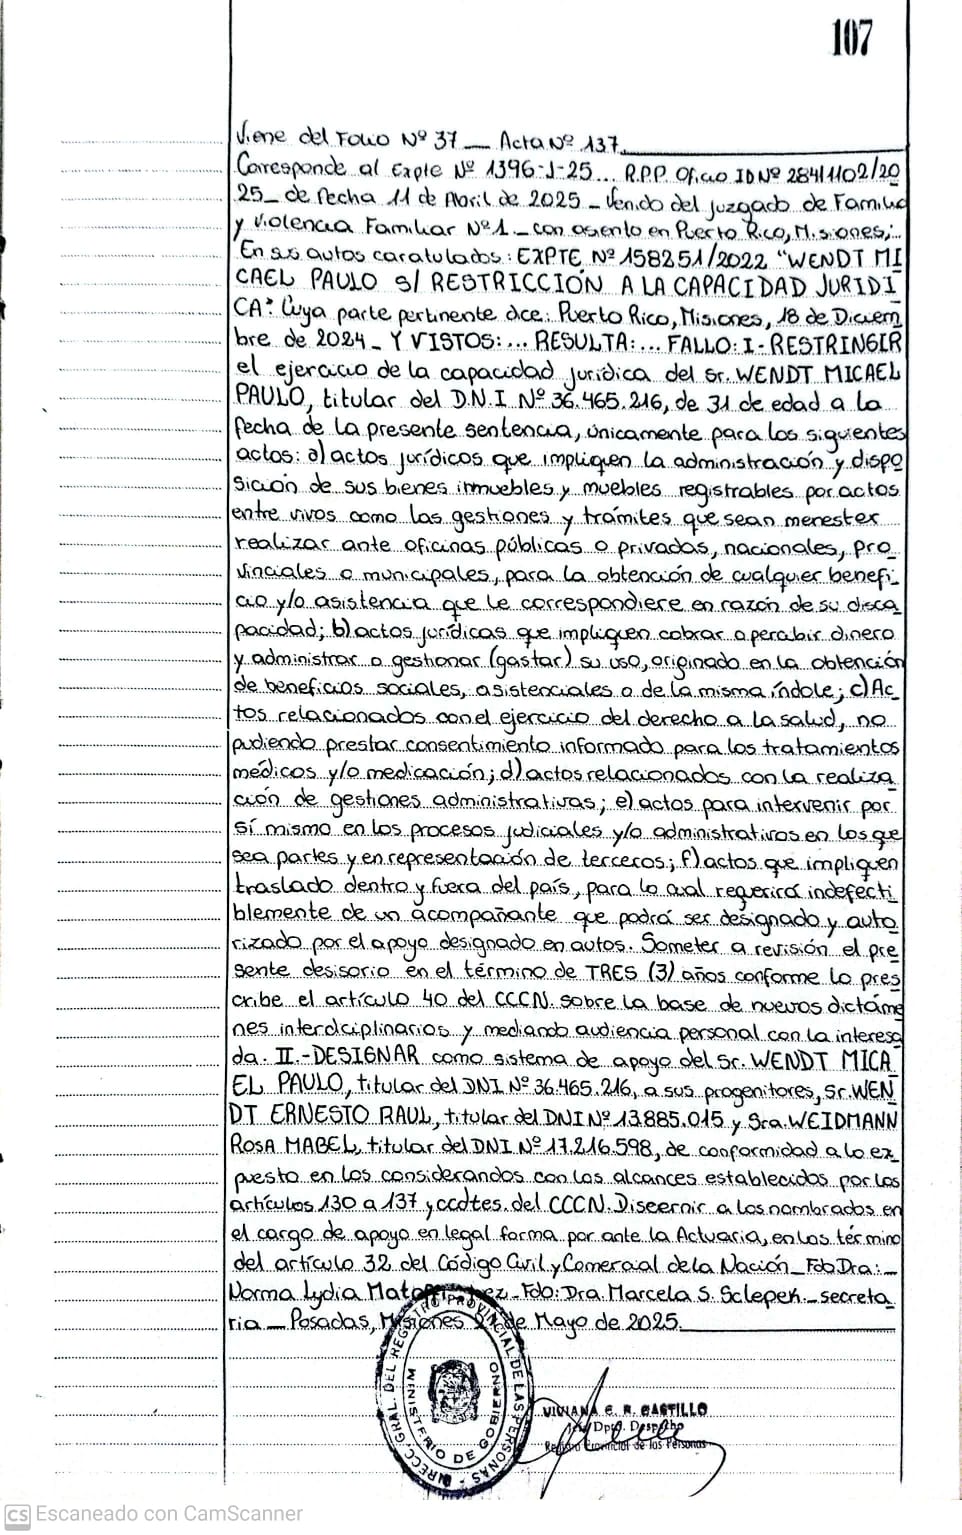 107
Viene del Folio Nº 37 _ Acta Nº 137
Corresponde al Expte Nº 1396-J-25... R.P.P. Oficio ID Nº 2841102/20
25_ de fecha 11 de Abril de 2025 _ Venido del juzgado de Familia
y Violencia Familiar Nº 1_ con asiento en Puerto Rico, Misiones,
En sus autos caratulados: EXPTE Nº 158251/2022 "WENDT MI
CAEL PAULO S/ RESTRICCIÓN A LA CAPACIDAD JURIDI
CA": Cuya parte pertinente dce: Puerto Rico, Misiones, 18 de Diciem
bre de 2024_ Y VISTOS:... RESULTA:... FALLO: I- RESTRINGIR
el ejercicio de la capacidad jurídica del Sr. WENDT MICAEL
PAULO, titular del D.N.I Nº 36.465.216, de 31 de edad a la
fecha de la presente sentencia, únicamente para los siguientes
actos: a) actos jurídicos que impliquen la administración y dispo
sición de sus bienes inmuebles y muebles registrables por actos
entre vivos como las gestiones y trámites que sean menester
realizar ante oficinas públicas o privadas, nacionales, pro
vinciales o municipales, para la obtención de cualquier benefi
cio y/o asistencia que le correspondiere en razón de su disca
pacidad; b) actos jurídicas que impliquen cobrar o percibir dinero
y administrar o gestionar (gastar) su uso, originado en la obtención
de beneficios sociales, asistenciales o de la misma índole; c) Ac
tos relacionados con el ejercicio del derecho a la salud, no
pudiendo prestar consentimiento informado para los tratamientos
médicos y/o medicación; d) actos relacionados con la realiza
ción de gestiones administrativas; e) actos para intervenir por
sí mismo en los procesos judiciales y/o administrativos en los que
sea partes y en representación de terceros; f) actos que impliquen
traslado dentro y fuera del país, para lo cual requerirá indefecti
blemente de un acompañante que podrá ser designado y auto
rizado por el apoyo designado en autos. Someter a revisión el pre
sente desisorio en el término de TRES (3) años conforme lo pres
cribe el artículo 40 del CCCN. sobre la base de nuevos dictáme
nes interdciplinarios y mediando audiencia personal con la interesa
da. II.- DESIGNAR como sistema de apoyo del Sr. WENDT MICA
EL PAULO, titular del DNI Nº 36.465.216, a sus progenitores, Sr. WEN
DT ERNESTO RAUL, titular del DNI Nº 13.885.015 y Sra. WEIDMANN
ROSA MABEL, titular del DNI Nº 17.216.598, de conformidad a lo ex
puesto en los considerandos con los alcances establecidos por los
artículos 130 a 137 y ccdtes. del CCCN. Discernir a los nombrados en
el cargo de apoyo en legal forma por ante la Actuaria, en los término
del artículo 32 del Código Civil y Comercial de la Nación_ Fdo Dra:_
Norma Lydia _ Fdo: Dra. Marcela S. Sclepek._ secreta
ria _ Posadas, Misiones de Mayo de 2025.
DIRECC. GRAL. DEL REGISTRO PROVINCIAL DE LAS PERSONAS
MINISTERIO DE GOBIERNO
VIVIANA E. R. CASTILLO
Dpto. Despacho
Registro Provincial de las Personas
CS Escaneado con CamScanner